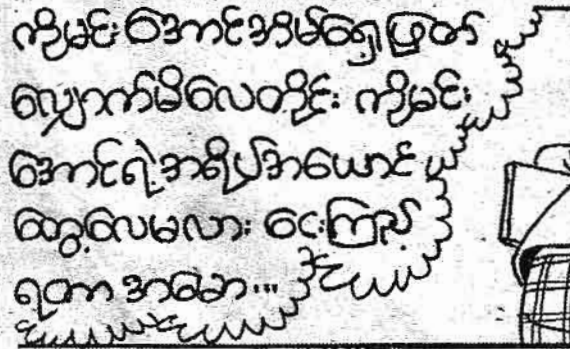 ကိုမင်းအောင်အိမ်ရှေ့ဖြတ်
လျှောက်မိလေတိုင်း ကိုမင်း
အောင်ရဲ့အရိပ်အယောင်
တွေ့လေမလား ငေးကြည့်
ရတာ အမော...